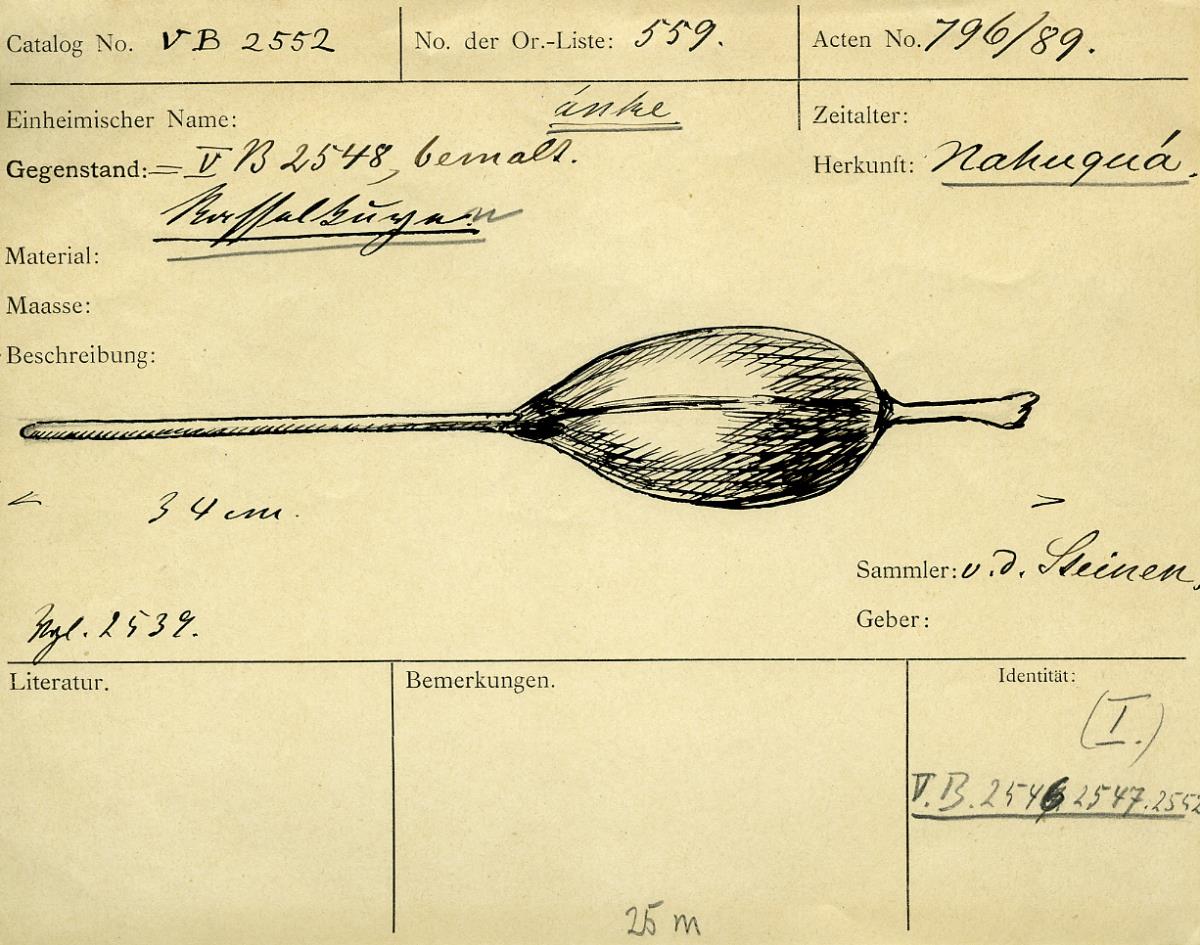 Catalog No. V B 2552
No. der Or.-Liste: 559.
Acten No. 796/89.
Einheimischer Name: ánke
Zeitalter:
Gegenstand: = V B 2548, bemalt.
Herkunft: Nahuquá.
Material:
Maasse:
Beschreibung:
34 cm.
Sammler: v. d. Steinen,
Geber:
Vgl. 2539.
Literatur.
Bemerkungen.
Identität:
(I.)
V.B. 2546. 2547. 2552
25 m